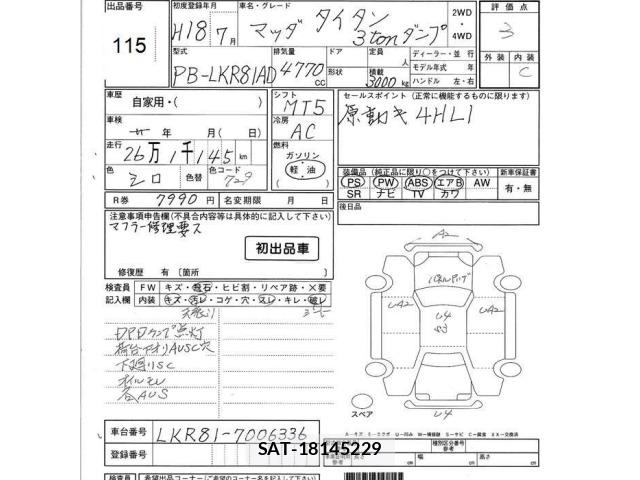 出品番号 初度登録年月 車名・グレード 2WD 評価点
115 H18年7月 マツダ タイタン 3tonダンプ 4WD 3
型式 排気量 ドア 定員 人 ディーラー・並行 外装 内装
PB-LKR81AD 4770 cc 形状 積載 3000 kg モデル年式 年 C
ハンドル 左・右
車歴 自家用・( ) シフト MT5 セールスポイント (正常に機能するものに限ります)
原動キ 4HL1
車検 年 月(日) 冷房 AC
走行 26万1千145 km 燃料 ガソリン 軽・油
色 シロ 色替 色コード 729
装備品 (純正品に限り○をつけて下さい) 新車保証書
PS PW ABS エアB AW 有・無
SR ナビ TV カワ
R券 7990円 名変期限 月 日
後日品
注意事項申告欄(不具合内容等は具体的に記入して下さい)
マフラー修理要ス
初出品車
修復歴 有 〔箇所 〕
検査員 FW キズ・飛石・ヒビ割・リペア跡・X要
記入欄 内装 キズ・汚レ・コゲ・穴・スレ・キレ・破レ
DPDランプ点灯
荷台アオリAUSC穴
下廻りSC
オイルモレ
各AUS
A2
パネルアップ
UA2 U4 UA2
S3
U4
スペア
車台番号 LKR81-7006336
登録番号
SAT-18145229
検査員 希望出品コーナー